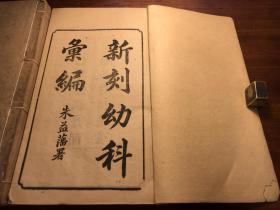 新刻幼科
彙編
朱益藩署